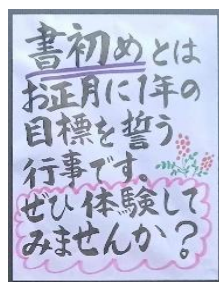 書初めとは
お正月に1年の
目標を誓う
行事です。
ぜひ体験して
みませんか?